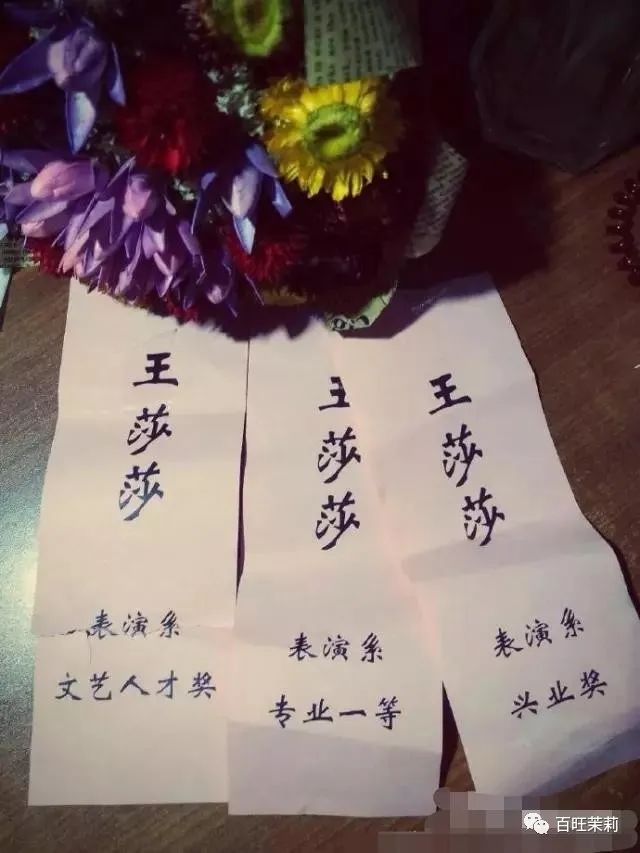 王莎莎
表演系
文艺人才奖
王莎莎
表演系
专业一等
王莎莎
表演系
兴业奖
百旺茉莉